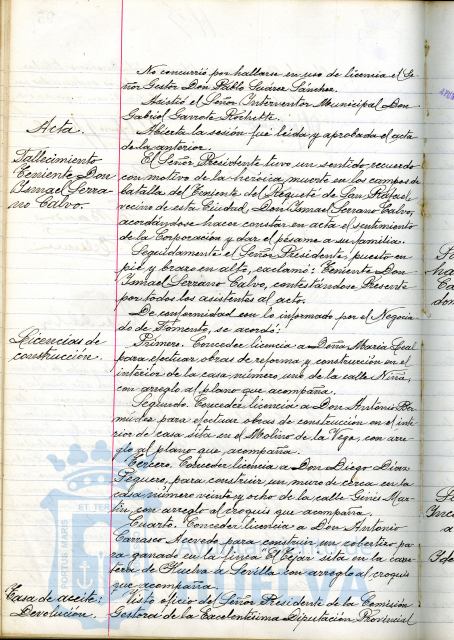 No concurrió por hallarse en uso de licencia el Se-
ñor Gestor Don Pablo Suárez Sánchez.
Asistió el Señor Interventor Municipal Don
Gabriel Garrote Rochette.
Acta.
Abierta la sesión fué leida y aprobada el acta
de la anterior.
Fallecimiento
Teniente Don
Ismael Serra-
no Calvo.
El Señor Presidente tuvo un sentido recuerdo
con motivo de la heróica muerte en los campos de
batalla del Teniente del Requeté de San Rafael
vecino de esta Ciudad, Don Ismael Serrano Calvo,
acordándose hacer constar en acta el sentimiento
de la Corporación y dar el pésame a su familia.
Seguidamente el Señor Presidente, puesto en
pié y brazo en alto, exclamó: Teniente Don
Ismael Serrano Calvo, contestándose Presente
por todos los asistentes al acto.
Licencias de
construcción.
De conformidad con lo informado por el Negocia-
do de Fomento, se acordó:
Primero. Conceder licencia a Doña María Leal
para efectuar obras de reforma y construcción en el
interior de la casa número uno de la calle Niña,
con arreglo al plano que acompaña.
Segundo. Conceder licencia a Don Antonio Ber-
múdez para efectuar obras de construcción en el inte-
rior de casa sita en el Molino de la Vega, con arre-
glo al plano que acompaña.
Tercero. Conceder licencia a Don Diego Díaz
Peguero, para construir un muro de cerca en la
casa número veinte y ocho de la calle Ginés Mar-
tín con arreglo al croquis que acompaña.
Cuarto. Conceder licencia a Don Antonio
Carrasco Acevedo para construir un cobertizo pa-
ra ganado en la finca El Tejar sita en la carre-
tera de Huelva a Sevilla con arreglo al croquis
que acompaña.
Tasa de aceite:
Devolución.
Visto oficio del Señor Presidente de la Comisión
Gestora de la Excelentísima Diputación Provincial
PORTUS MARIS
ET TER
HUELVA